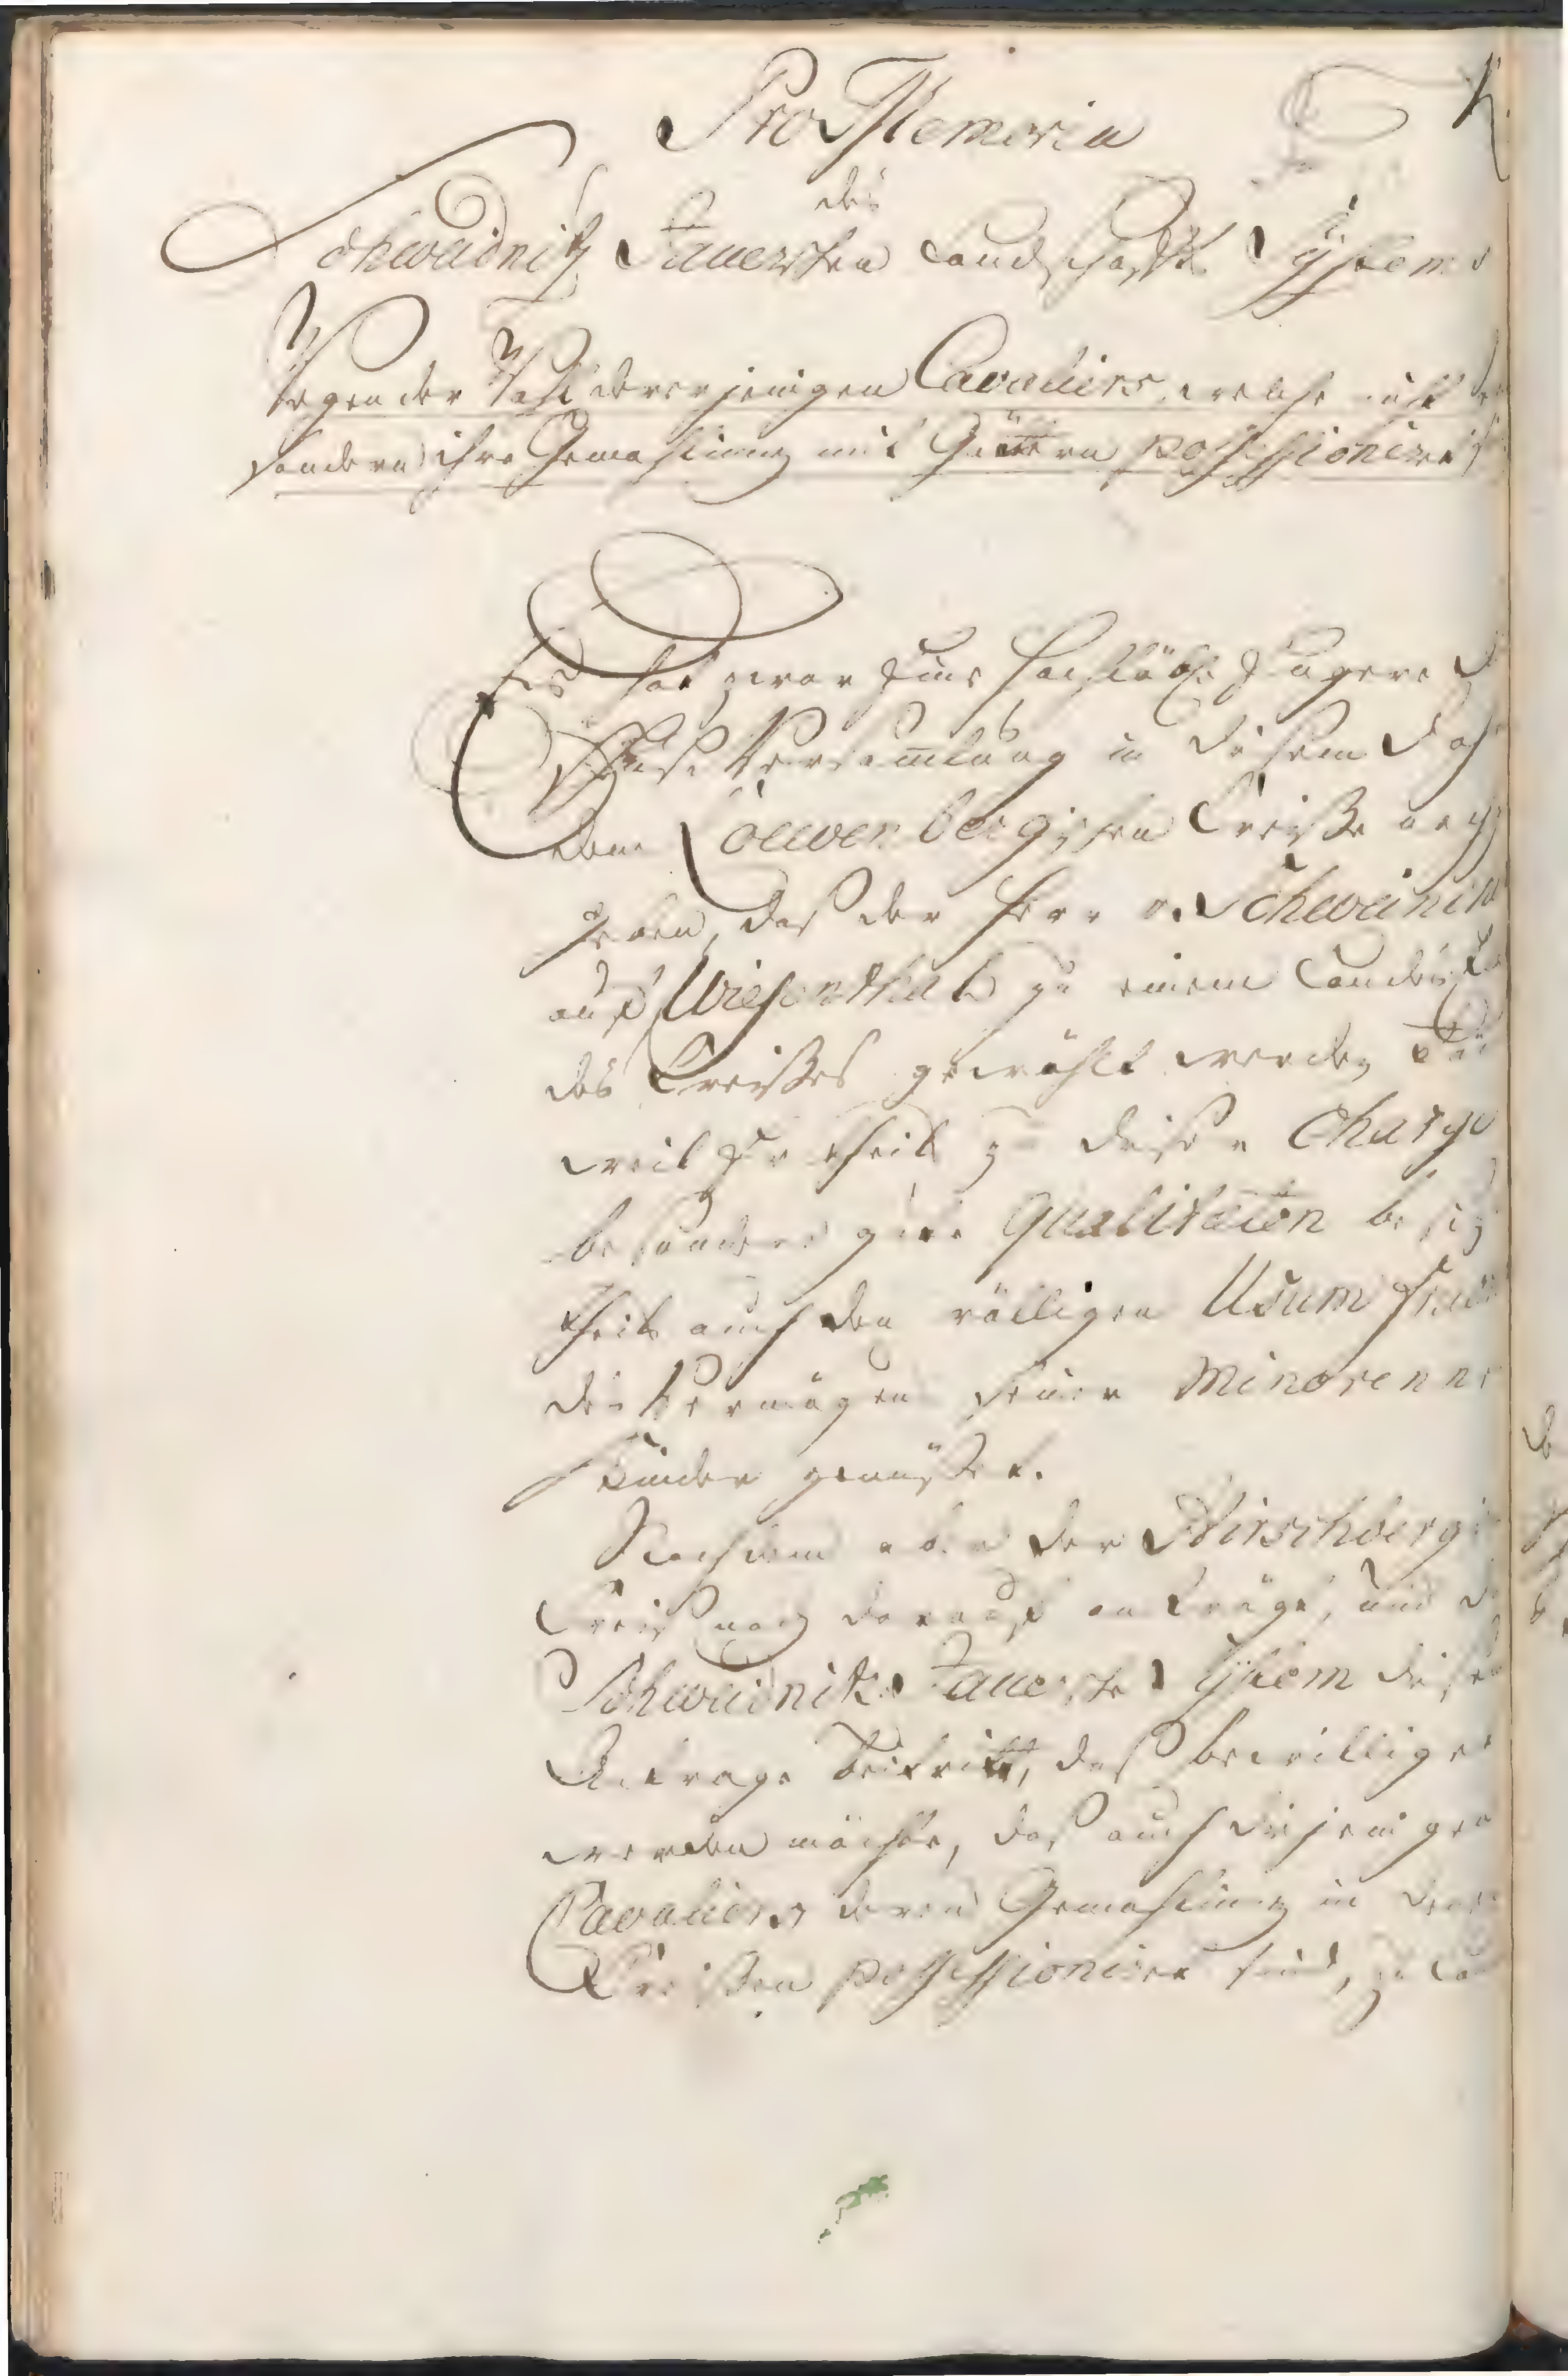 Pro Memoria
des
Schweidnitz Jauerschen Landschafts Systems
Wegen der Wahl dererjenigen Cavaliers, welche nicht
sondern ihre Gemahlinnen mit Güttern possessioniret
Es hat zwar Eine
Versammlung in diesem
dem Loewenbergschen Creiße nach
geben, daß der Herr v. Schweinitz
auf Wiesenthal zu einem Landes
des Creißes gewählt werden
weil Er theils zu dieser Charge
besonders gute Qualitaeten besitzt
theils auch den völligen Usum
des Vermögens seiner Minorennen
Kinder genüßet.
Nachdem aber der Hirschberg
Creiß noch darauf anträgt, und
Schweidnitz Jauersche System diesem
Antrage beitritt, daß bewilliget
werden möchte, daß auch diejenigen
Cavaliers deren Gemahlinnen in denen
Creißen possessioniret sind, zu